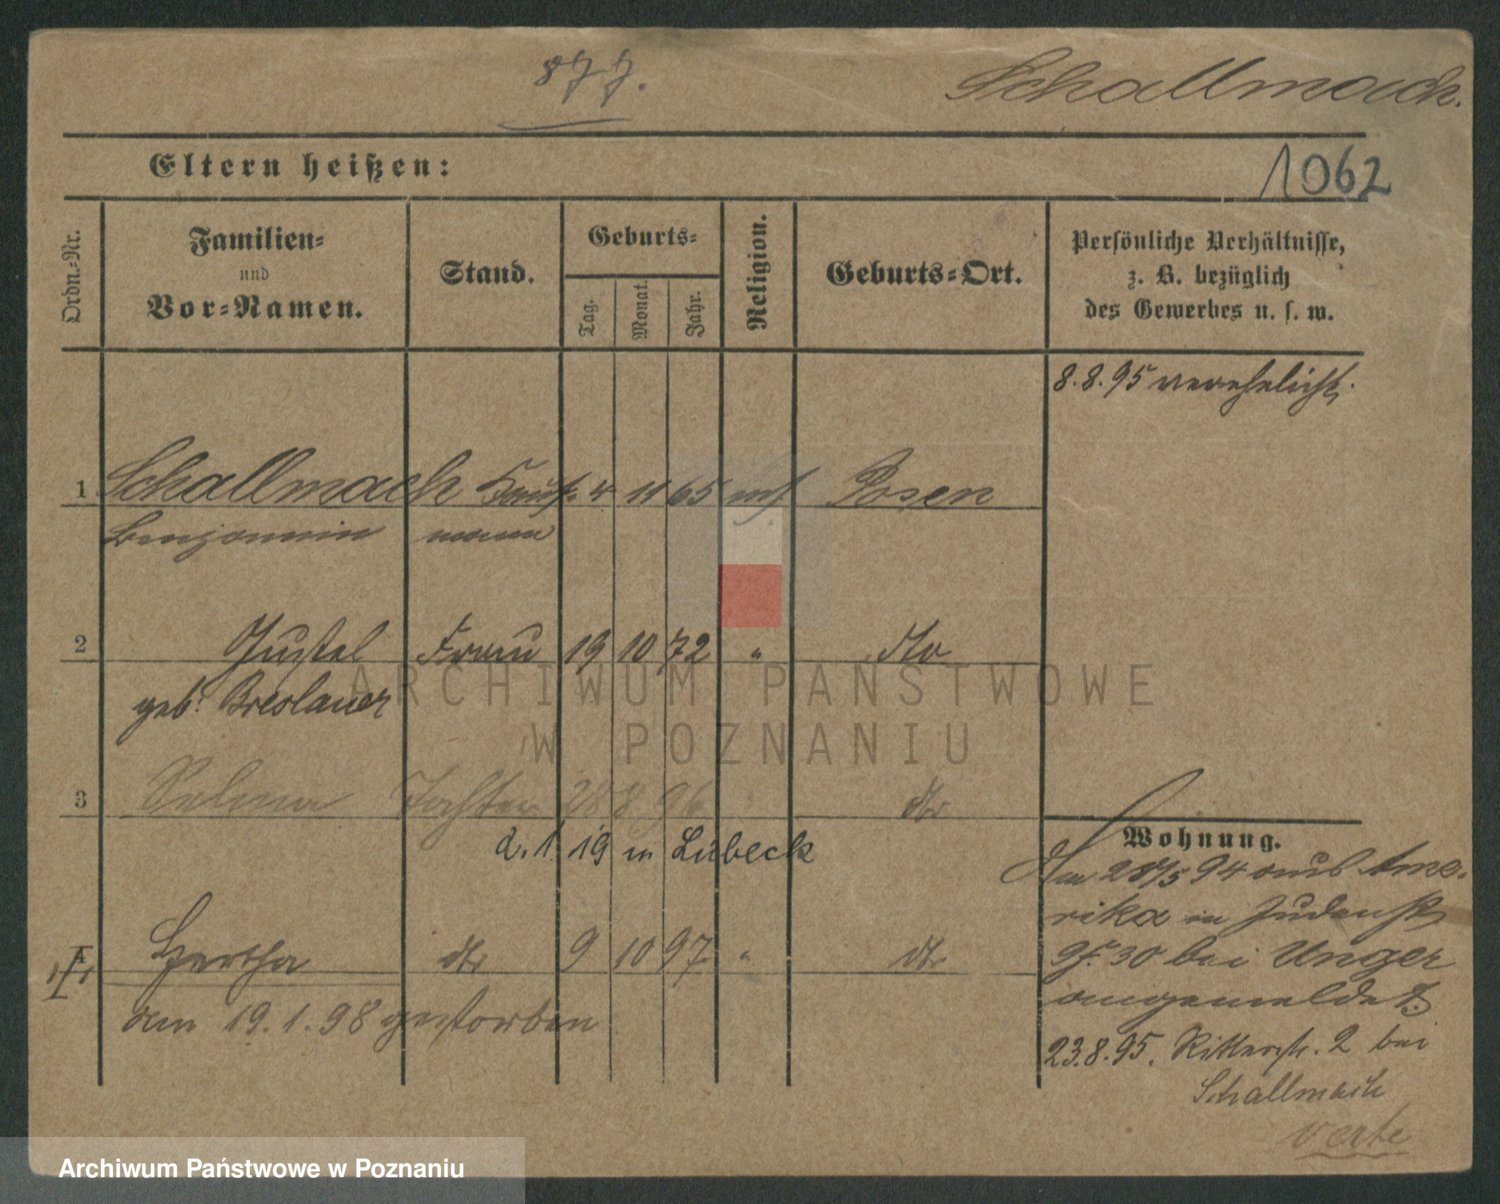 877.
Schallmach.
Eltern heißen:
1062
Ordn.-Nr.
Familien-
und
Vor-Namen.
Stand.
Geburts-
Tag.
Monat.
Jahr.
Religion.
Geburts-Ort.
Persönliche Verhältnisse,
z. B. bezüglich
des Gewerbes u. s. w.
8.8.95 verehelicht.
1 Schallmach Kauf- 4 11 65 mos Posen
Benjamin mann
2 Justel Frau 19 10 72 " dto
geb. Breslauer
3 Selma Tochter 28 8 96 dto
2.1 19 in Lübeck
Hertha dto 9 10 97 " dto
am 19.1.98 gestorben
Wohnung.
Am 28/5 94 aus Ame-
rika in Judenstr
30 bei Unger
angemeldet.
23.8.95. Ritterstr. 2 bei
Schallmach
verte
ARCHIWUM PAŃSTWOWE
W POZNANIU
Archiwum Państwowe w Poznaniu